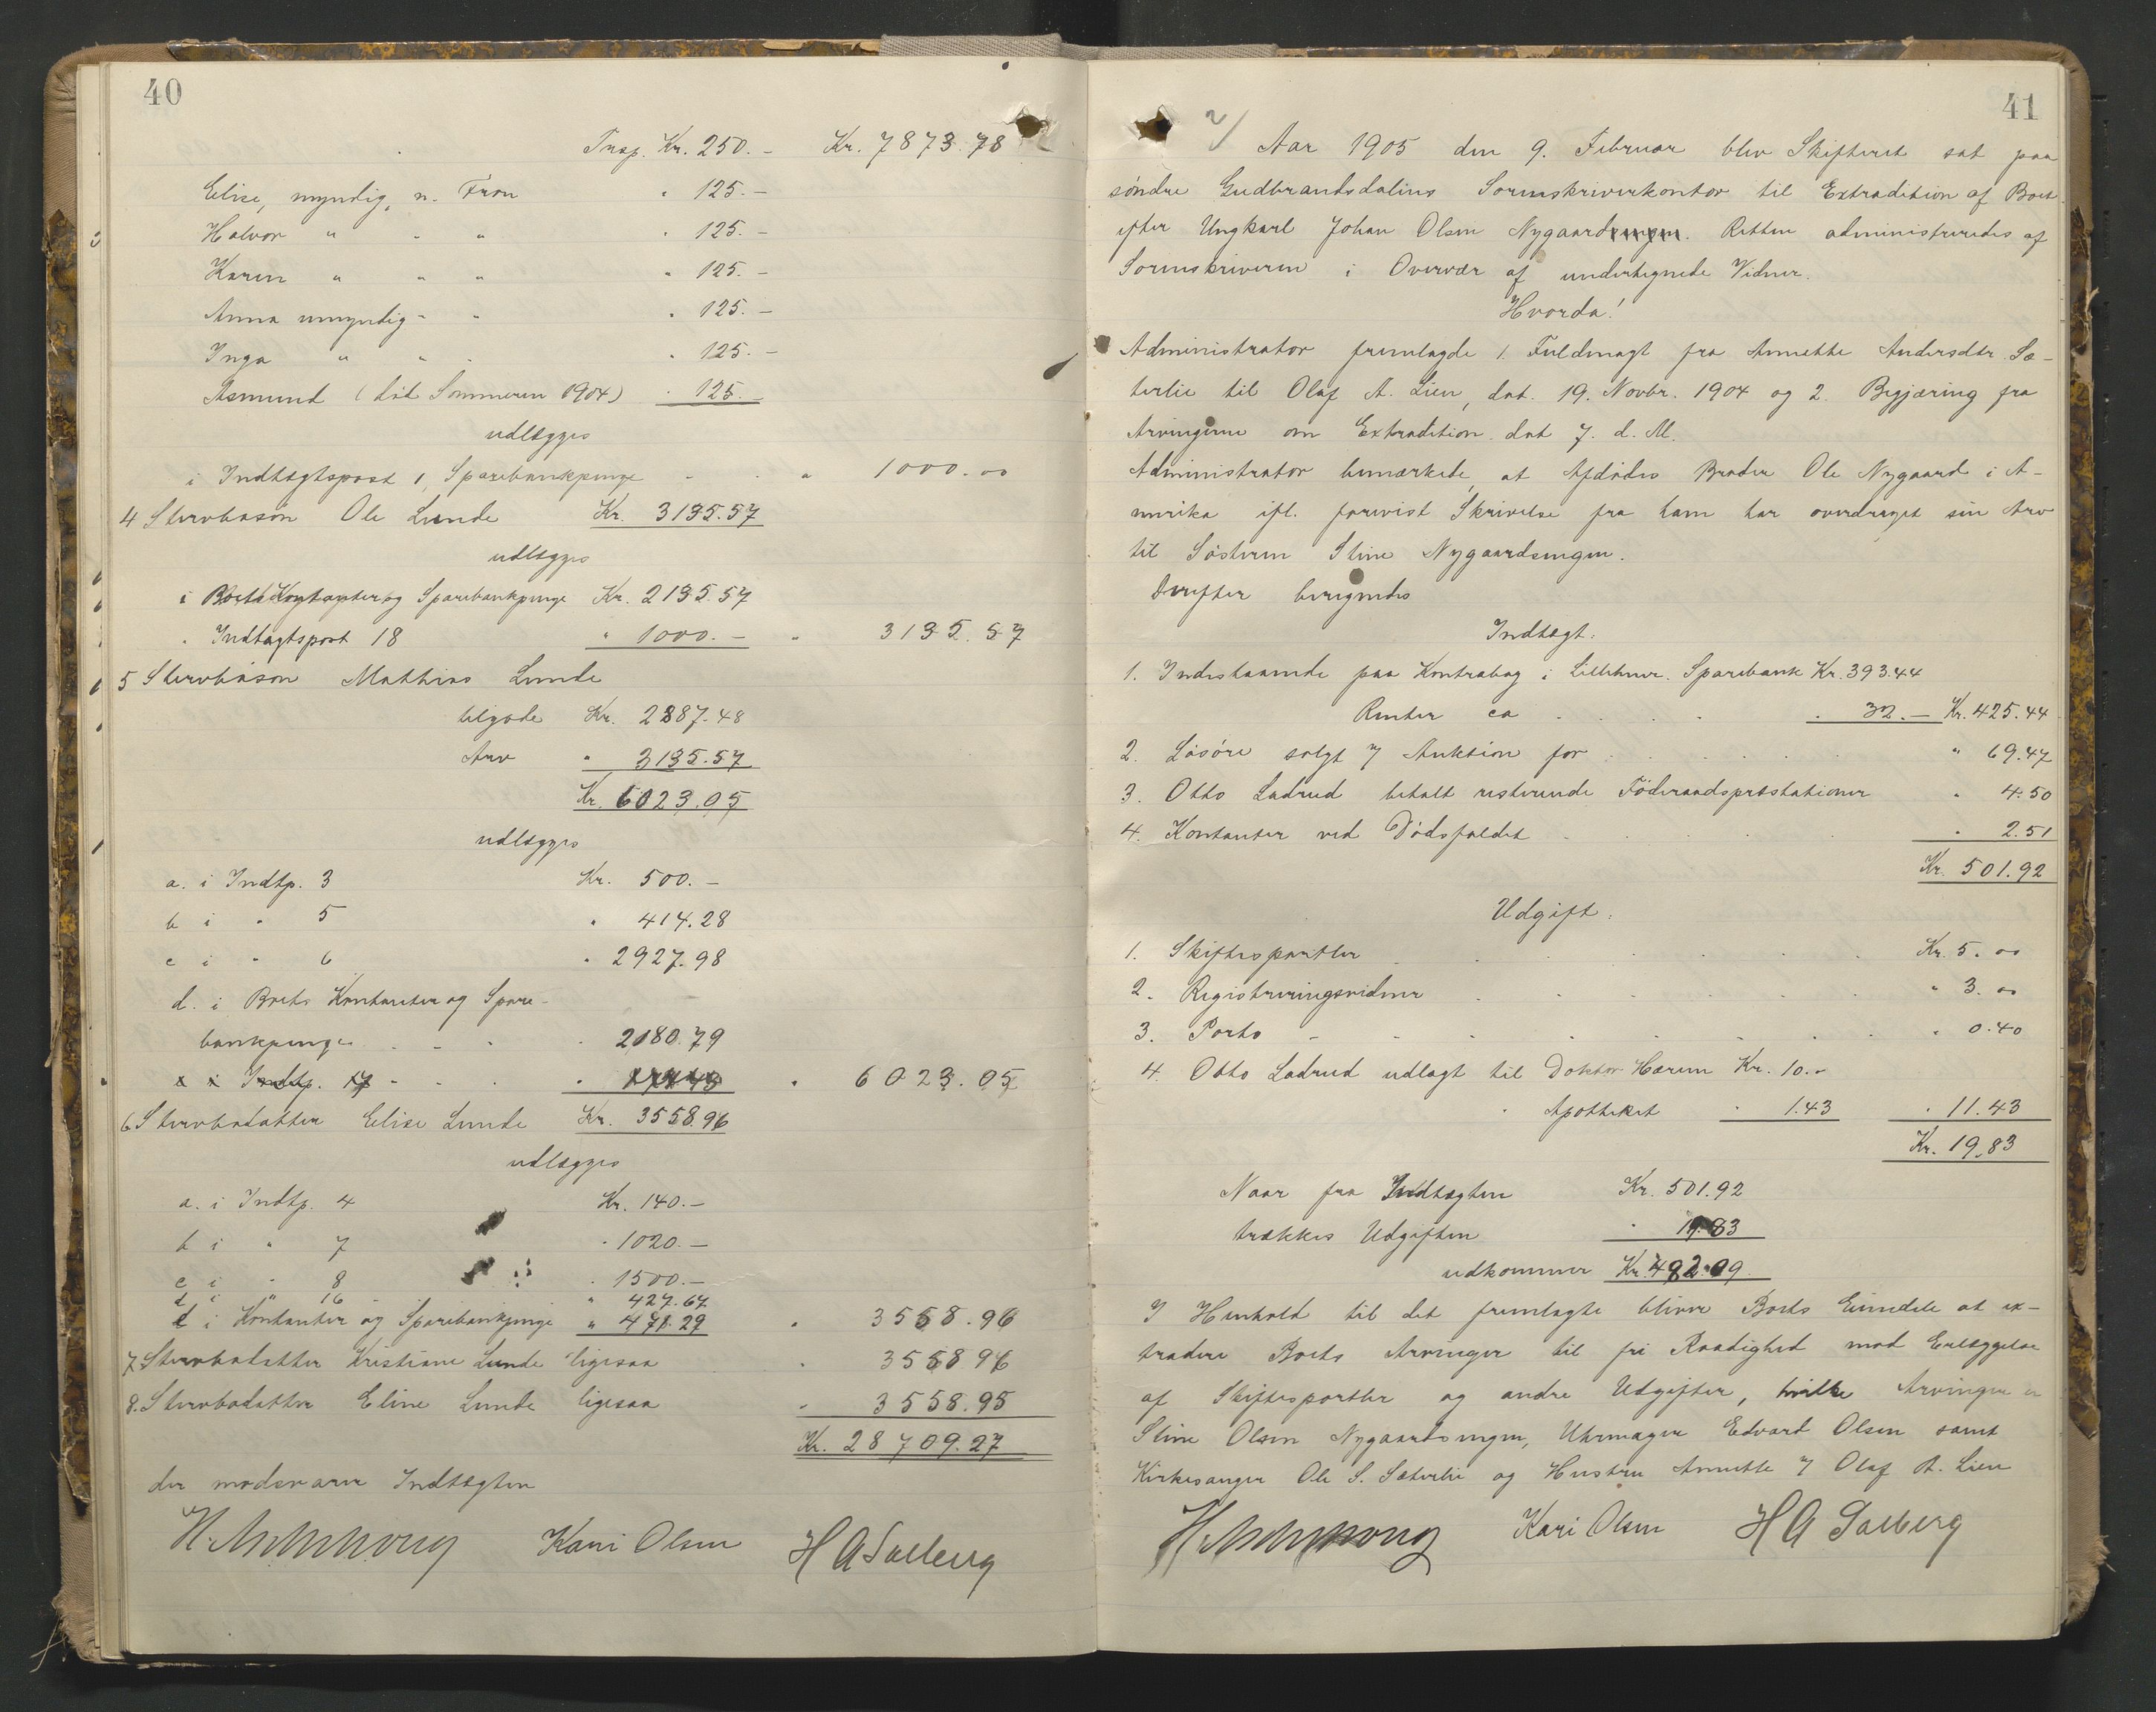 40
Trsp. Kr. 250.- Kr. 7873.78
Elise, myndig, n. Fron " 125.-
Halvor " - " " 125.-
Karen " " " " 125.-
Anna umyndig " " " 125.-
Inga " " " " 125.-
Asmund (död Sommeren 1904) " 125.-
udlægges
i Indtægtspost 1, Sparebankpenge - - " 1000.00
4 Stervbosön Ole Lunde Kr. 3135.57
udlægges
i Boets Kontanter og Sparebankpenge Kr. 2135.57
" Indtægtspost 18 " 1000.- " 3135.57
5 Stervbosön Mathias Lunde
tilgode Kr. 2887.48
Arv " 3135.57
Kr. 6023.05
udlægges
a. i Indtp. 3 Kr. 500.-
b i " 5 " 414.28
c i " 6 " 2927.98
d. i Boets Kontanter og Spare-
bankpenge - - - " 2180.79
i Indtp. 17 - - - " 6023.05
6 Stervbodatter Elise Lunde Kr. 3558.96
udlægges
a. i Indtp. 4 Kr. 140.-
b i " 7 " 1020.-
c i " 8 " 1500.-
d i " 16 - " 427.67
e i Kontanter og Sparebankpenge " 471.29 " 3558.96
7 Stervbodatter Kristiane Lunde ligesaa " 3558 96
8. Stervbodatter Eline Lunde ligesaa " 3558.95
Kr. 28709.27
der modsvarer Indtægten
Kari Olsen H A Solberg
41
2/ Aar 1905 den 9. Februar blev Skifteret sat paa
söndre Gudbrandsdalens Sorenskriverkontor til Extradition af Boet
efter Ungkarl Johan Olsen Nygaardsengen. Retten administreredes af
Sorenskriveren i Overvær af undertegnede Vidner.
Hvorda!
Administrator fremlagde 1. Fuldmagt fra Annette Andersdtr. Sæ-
terlie til Olaf A. Lien, dat. 19. Novbr. 1904 og 2. Begjæring fra
Arvingerne om Extradition dat 7. d. M.
Administrator bemærkede, at Afdödes Broder Ole Nygaard i A-
merika ifl. forevist Skrivelse fra ham har overdraget sin Arv
til Sösteren Stine Nygaardsengen.
Derefter beregnedes
Indtægt:
1. Indestaaende paa Kontrabog i Lillehmr. Sparebank Kr. 393.44
Renter ca - - - - " 32.- Kr. 425.44
2. Lösöre solgt v Auktion for - - - - " 69.47
3. Otto Ladrud betalt resterende Föderaadsprestationer " 4.50
4. Kontanter ved Dödsfaldet - - - - " 2.51
Kr. 501.92
Udgift:
1. Skiftesportler - - - - Kr. 5.00
2. Registreringsvidner - - - - " 3.00
3. Porto - - - - " 0.40
4. Otto Ladrud udlagt til Doktor Hærem Kr. 10.-
" Apotheket " 1.43 " 11.43
Kr. 19,83
Naar fra Indtægten Kr. 501.92
trækkes Udgiften " 19.83
udkommer Kr. 482.09
I Henhold til det fremlagte bliver Boets Eiendele at ex-
tradere Boets Arvinger til fri Raadighed mod Erlæggelse
af Skiftesportler og andre Udgifter, hvilke Arvinger er
Stine Olsen Nygaardsengen, Uhrmager Edvard Olsen samt
Kirkesanger Ole S. Sæterlie og Hustru Annette v Olaf A. Lien
Kari Olsen H A Solberg